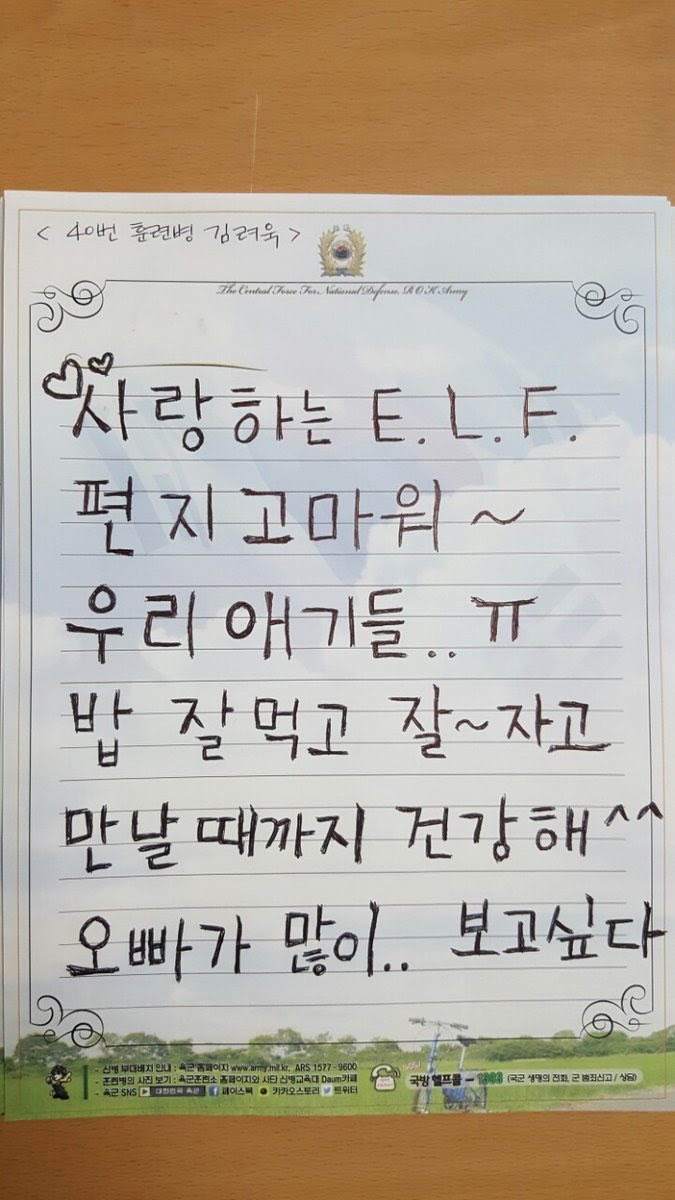 < 40번 훈련병 김려욱 >
The Central Force For National Defense, R O K Army
사랑하는 E.L.F.
편지 고마워~
우리 애기들.. ㅠ
밥 잘 먹고 잘~자고
만날 때까지 건강해^^
오빠가 많이.. 보고싶다
- 신병 부대배치 안내 : 육군 홈페이지 www.army.mil.kr, ARS 1577 - 9600
- 훈련병의 사진 보기 : 육군훈련소 홈페이지와 사단 신병교육대 Daum카페
- 육군 SNS 대한민국 육군 페이스북 카카오스토리 트위터
국방 헬프콜 - 1303 (국군 생명의 전화, 군 범죄신고 / 상담)